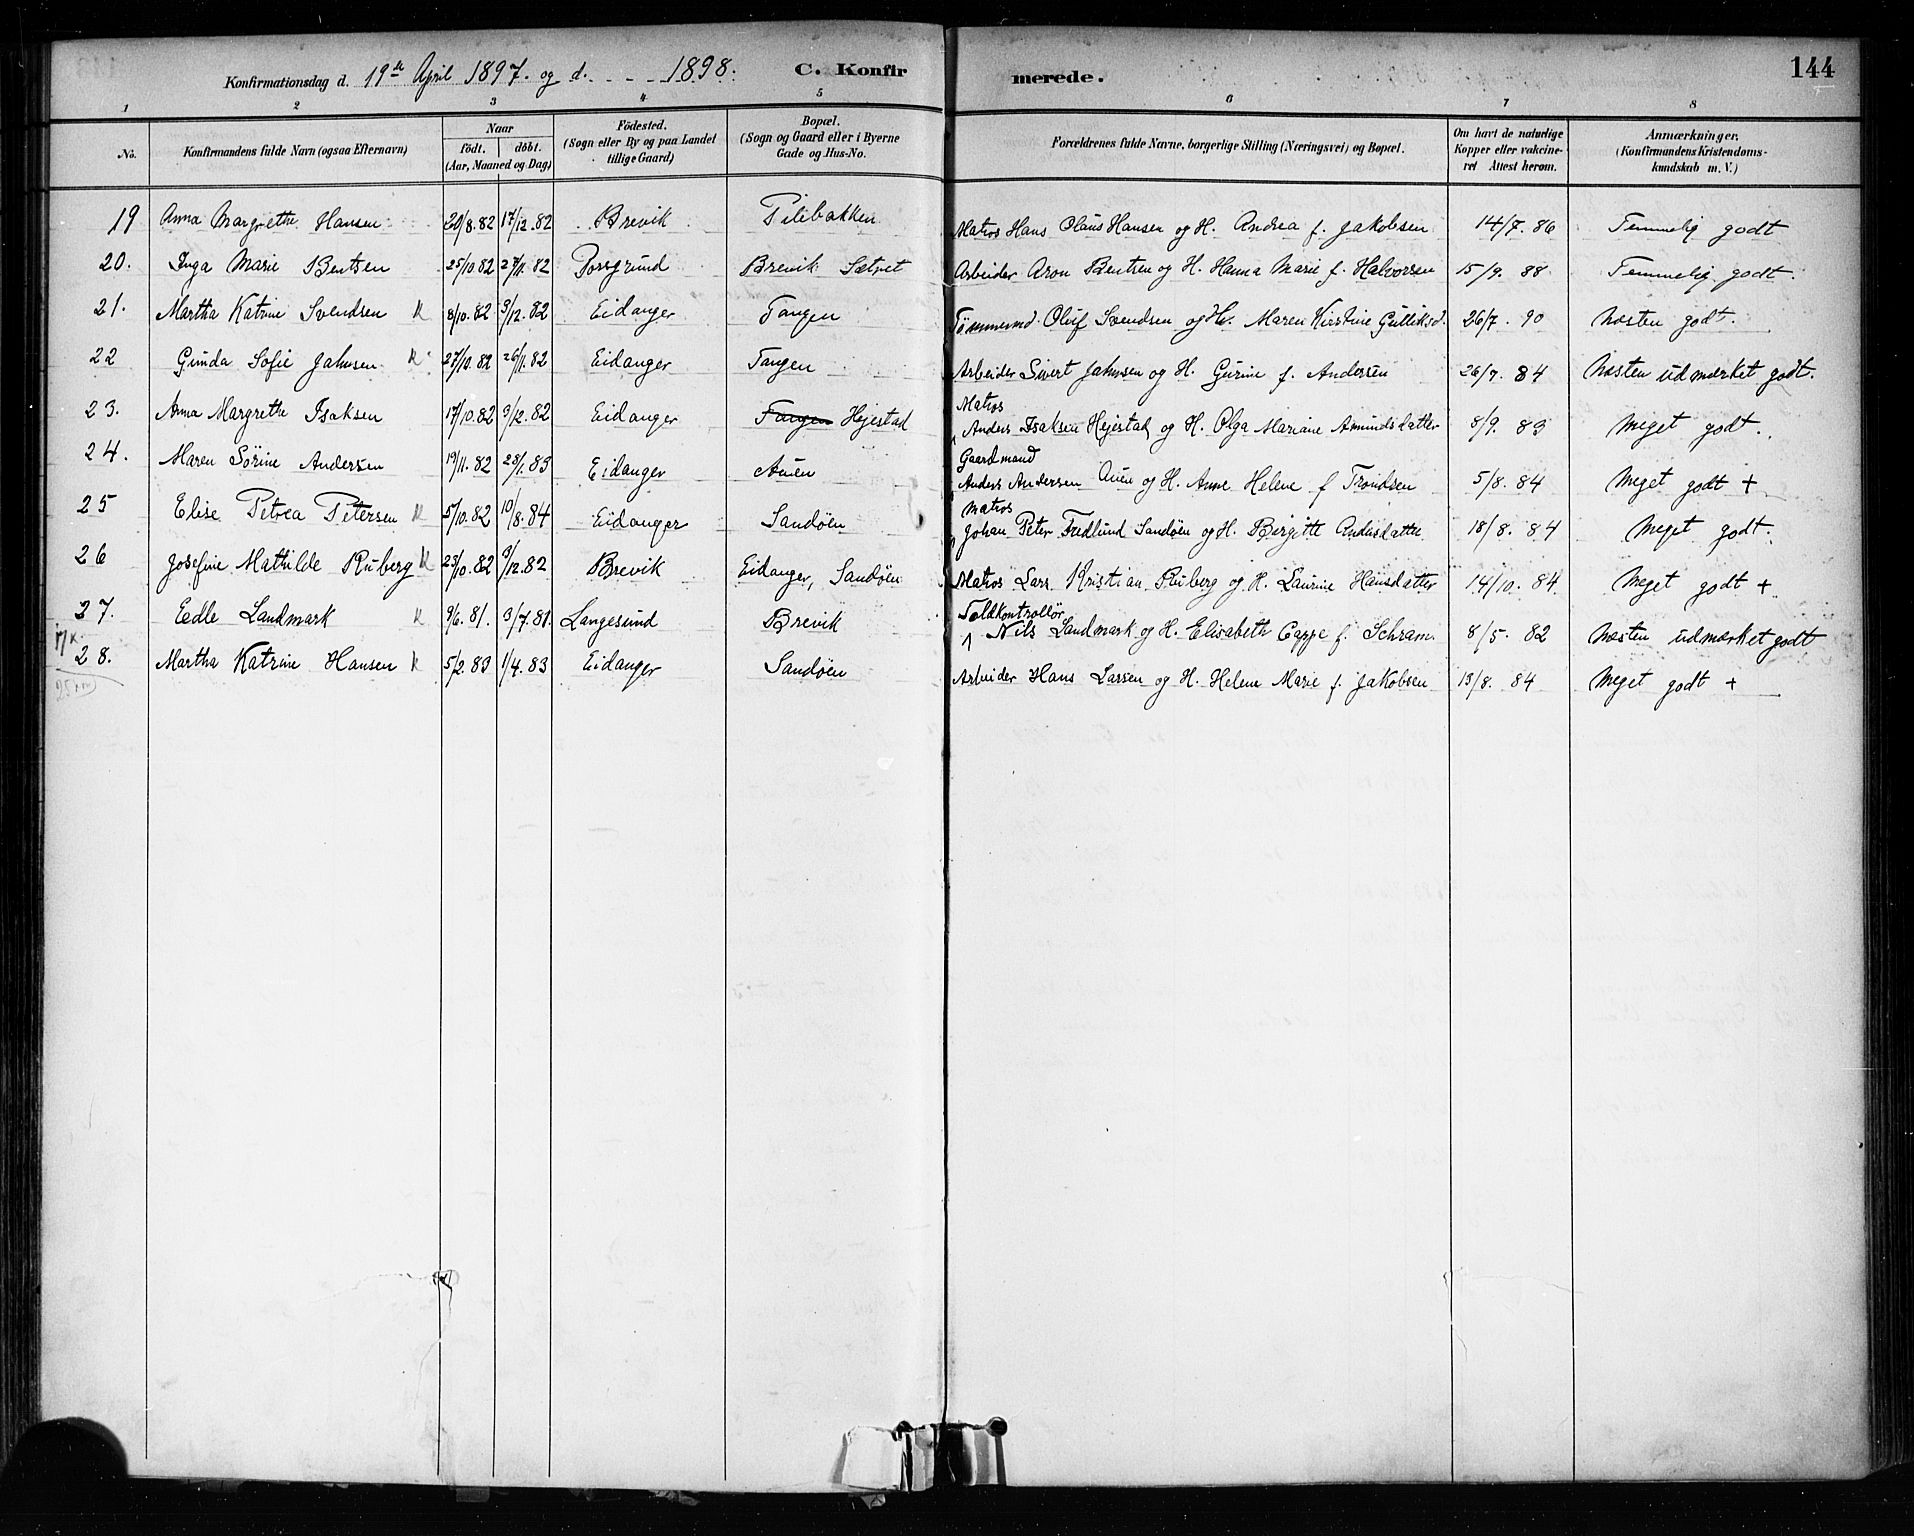 Konfirmationsdag d. 19de April 1897. og d. - - - - 1898. C. Konfirmerede. 144
1 2 3 4 5 6 7 8
No. Konfirmandens fulde Navn (ogsaa Efternavn) Naar født. døbt. (Aar, Maaned og Dag) Fødested. (Sogn eller By og paa Landet tillige Gaard) Bopæl. (Sogn og Gaard eller i Byerne Gade og Hus-No. Forældrenes fulde Navne, borgerlige Stilling (Næringsvei) og Bopæl. Om havt de naturlige Kopper eller vakcineret Attest herom. Anmærkninger. (Konfirmandens Kristendomskundskab m. V.)
19 Anna Margrethe Hansen 20/8.82 17/12.82 Brevik Pilebakken Matros Hans Olaus Hansen og H. Andrea f. Jakobsen 14/7. 86 Temmelig godt
20. Inga Marie Bentsen 25/10.82 27/11.82 Porsgrund Brevik Sætret Arbeider Aron Bentsen og H. Hanna Marie f. Halvorsen 15/9. 88 Temmelig godt.
21. Martha Katrine Svendsen K 8/10.82 3/12.82 Eidanger Tangen Tømmermd. Oluf Svendsen og H. Maren Kirstine Gulliksd. 26/7. 90 Næsten godt.
22 Gunda Sofie Jahnsen K 27/10.82 26/11.82 Eidanger Tangen Arbeider Sivert Jahnsen og H. Gurine f. Andersen 26/7. 84 Næsten udmærket godt.
23. Anna Margrethe Isaksen 17/10.82 3/12.82 Eidanger Tangen Hejestad Matros Anders Isaksen Hejestad og H. Olga Mariane Amundsdatter 8/9. 83 Meget godt.
24. Maren Sørine Andersen 19/11.82 28/1.83 Eidanger Auen Gaardmand Anders Andersen Auen og H. Anne Helene f Trondsen 5/8. 84 Meget godt +
25 Elise Petrea Petersen K 5/10.82 10/8.84 Eidanger Sandøen Matros Johan Peter Fredlund Sandøen og H. Birgitte Andersdatter 18/8. 84 Meget godt.
26 Josefine Mathilde Ruberg K 23/10.82 3/12.82 Brevik Eidanger, Sandøen Matros Lars Kristian Ruberg og H. Laurine Hansdatter 14/10. 84 Meget godt +
27. Edle Landmark K 9/6.81. 3/7.81. Langesund Brevik Toldkontrollør Nils Landmark og H. Elisabeth Cappe f. Schram. 8/5. 82 Næsten udmærket godt
28. Martha Katrine Hansen K 5/2.83 1/4.83 Eidanger Sandøen Arbeider Hans Larsen og H. Helene Marie f. Jakobsen 13/8. 84 Meget godt +